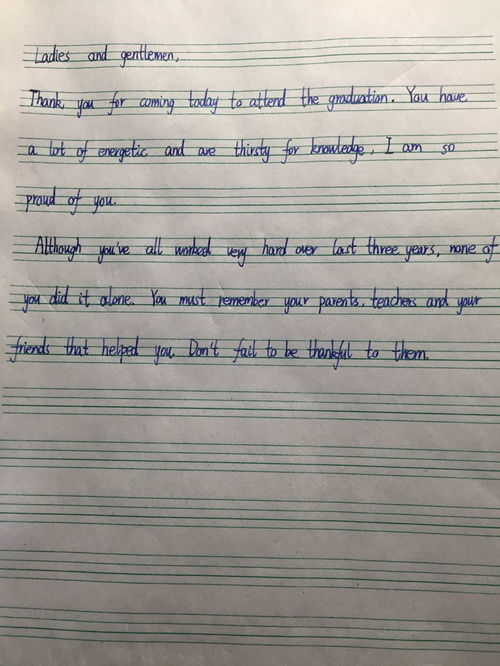 Ladies and gentlemen,
Thank you for coming today to attend the graduation. You have
a lot of energetic and are thirsty for knowledge. I am so
proud of you.
Although you've all worked very hard over last three years, none of
you did it alone. You must remember your parents, teachers and your
friends that helped you. Don't fail to be thankful to them.